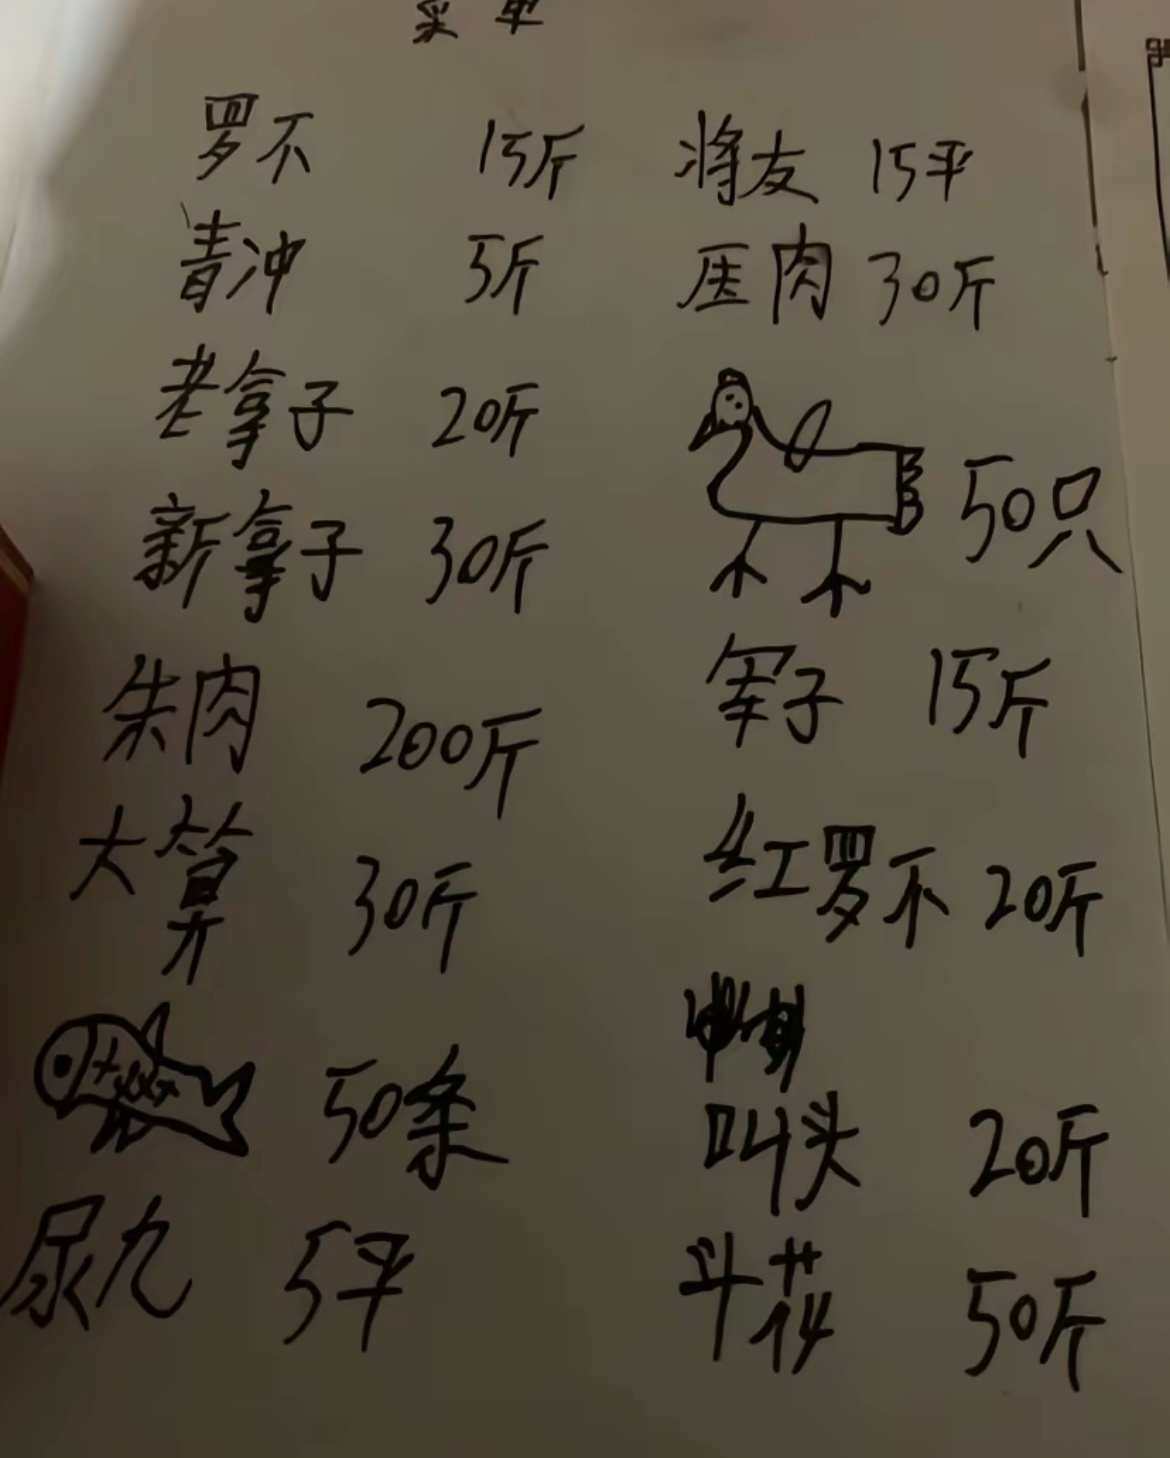 菜单
罗不 15斤
青冲 5斤
老拿子 20斤
新拿子 30斤
朱肉 200斤
大算 30斤
50条
尿九 5平
将友 15平
压肉 30斤
50只
子 15斤
红罗不 20斤
叫头 20斤
斗花 50斤